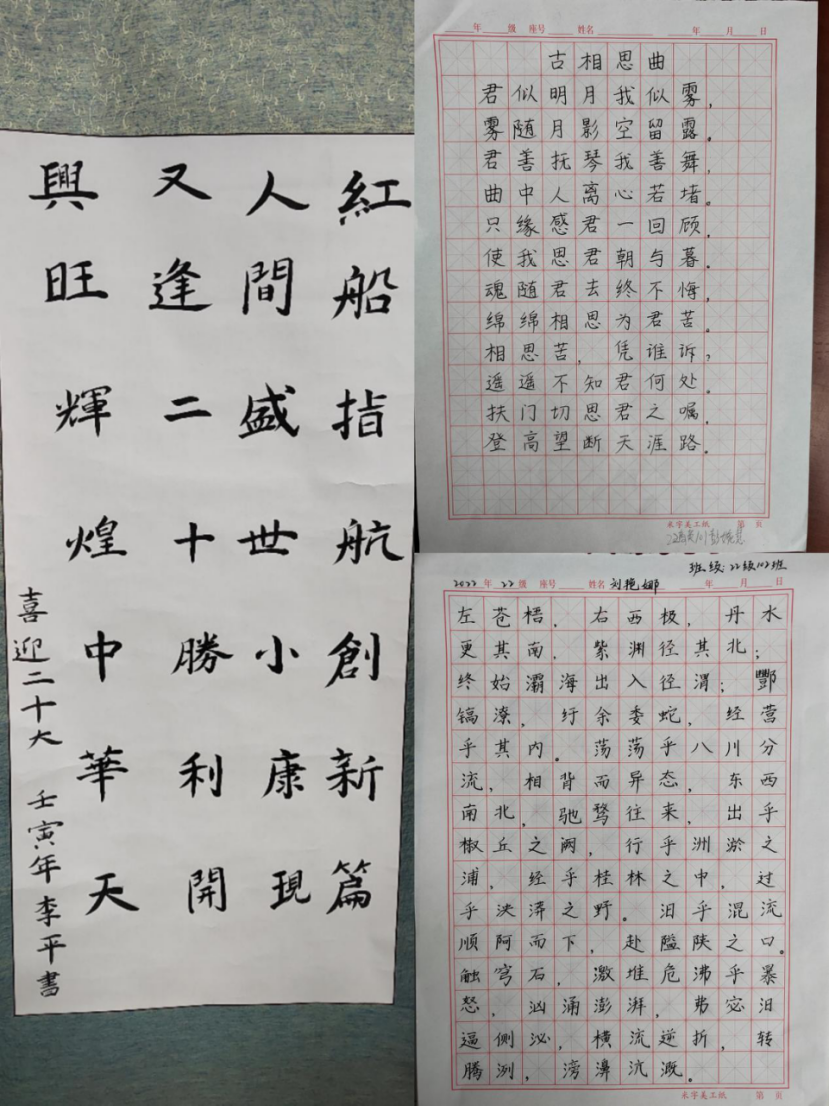 紅船指航創新篇
人間盛世小康現
又逢二十勝利開
興旺輝煌中華天
喜迎二十大 壬寅年李平書
年 级 座号 姓名 年 月 日
古相思曲
君似明月我似雾，
雾随月影空留露。
君善抚琴我善舞，
曲中人离心若堵。
只缘感君一回顾，
使我思君朝与暮。
魂随君去终不悔，
绵绵相思为君苦。
相思苦，凭谁诉？
遥遥不知君何处。
扶门切思君之嘱，
登高望断天涯路。
米字美工纸 第 页
班级：22级102班
2022年22级 座号 姓名 刘艳娜 年 月 日
左苍梧，右西极，丹水
更其南，紫渊径其北；
终始灞浐出入径渭；酆
镐潦，纡余委蛇，经营
乎其内。荡荡乎八川分
流，相背而异态，东西
南北，驰骛往来，出乎
椒丘之阙，行乎洲淤之
浦，经乎桂林之中，过
乎泱漭之野。汩乎混流
顺阿而下，赴隘陕之口。
触穹石，激堆埼沸乎暴
怒，汹涌澎湃，弗宓汩
逼侧泌，横流逆折，转
腾洌，滂濞沆溉。
米字美工纸 第 页